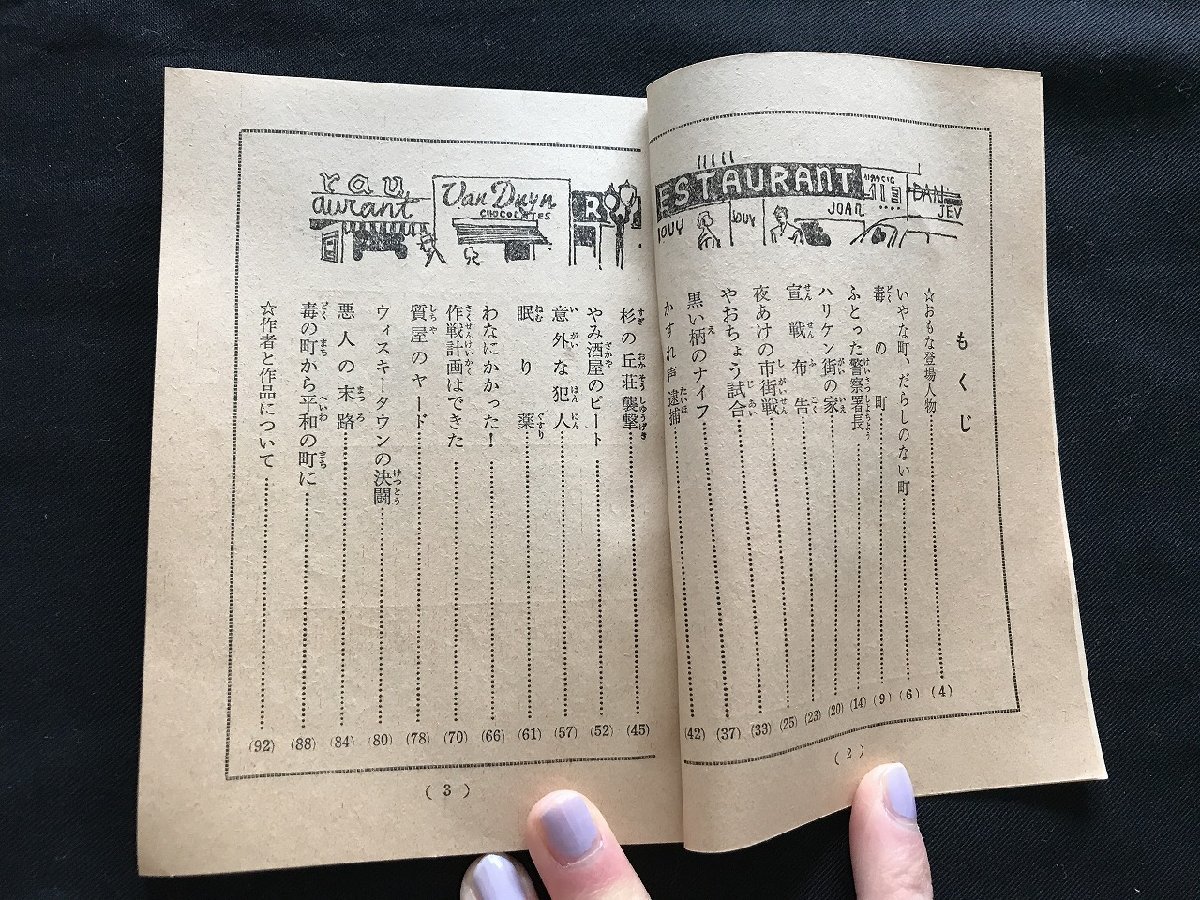 ESTAURANT
11
DAN
JEV
JOAN
JOUY
JOUY
もくじ
☆おもな登場人物 (4)
いやな町、だらしのない町 (6)
毒の町 (9)
ふとった警察署長 (14)
ハリケン街の家 (20)
宣戦布告 (23)
夜あけの市街戦 (25)
やおちょう試合 (33)
黒い柄のナイフ (37)
かすれ声逮捕 (42)
(2)
rau
aurant
Van Duyn
CHOCOLATES
R
杉の丘荘襲撃 (45)
やみ酒屋のビート (52)
意外な犯人 (57)
眠り薬 (61)
わなにかかった! (66)
作戦計画はできた (70)
質屋のヤード (78)
ウィスキータウンの決闘 (80)
悪人の末路 (84)
毒の町から平和の町に (88)
☆作者と作品について (92)
(3)